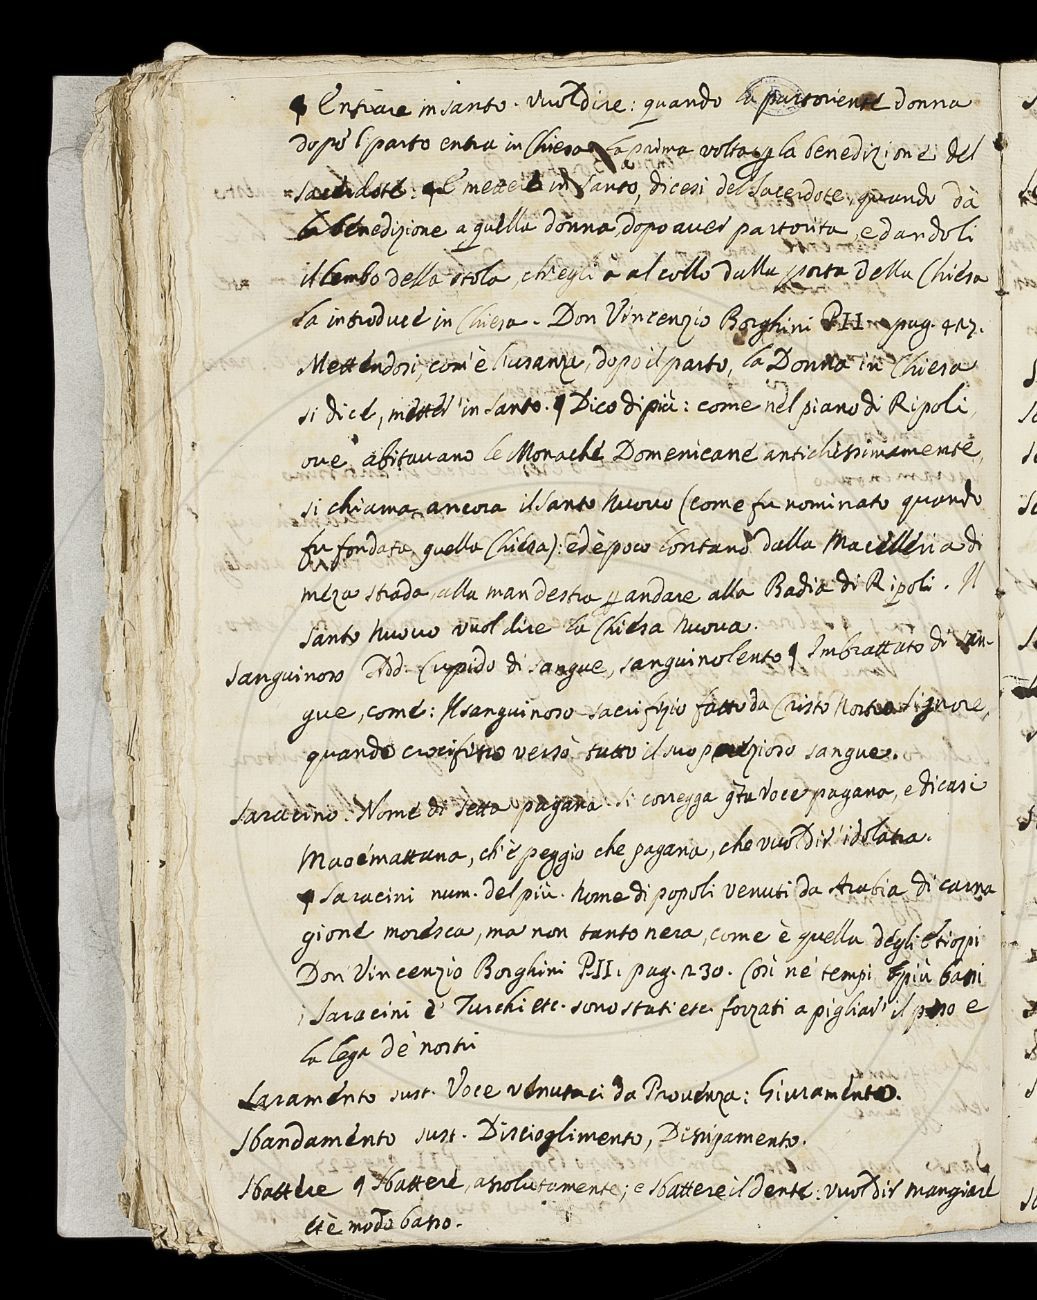 ¶ Entrare in santo. vuol dire: quando la partoriente donna
dopo 'l parto entra in Chiesa la prima volta p la benedizione del
Sacerdote: ¶ E mettere in santo, dicesi del Sacerdote, quando dà
la benedizione a quella donna, dopo aver partorita, e dandoli
il lembo della stola, ch'egli à al collo dalla porta della Chiesa
la introduce in Chiesa. Don Vincenzio Borghini P. II. pag. 417.
Mettendosi, com'è l'usanza, dopo il parto, la Donna in Chiesa
si dice, metter' in santo. ¶ Dico di più: come nel piano di Ripoli,
ove abitavano le Monache Domenicane antichissimamente,
si chiama ancora il Santo Nuovo (come fu nominato quando
fu fondata quella Chiesa): ed è poco lontano dalla Macelleria di
meza strada, alla man destra p andare alla Badia di Ripoli. Il
Santo Nuovo vuol dire la Chiesa Nuova.
Sanguinoso Add. Cupido di sangue, sanguinolento ¶ Imbrattato di san-
gue, come: Il sanguinoso sacrifizio fatto da Cristo Nostro Signore,
quando crocifisso versò tutto il suo prezioso sangue.
Saracino. Nome di Setta pagana. Si corregga qta Voce pagana, e dicasi
Maoemattana, ch'è peggio che pagana, che vuol dir' idolatra.
¶ Saracini num. del più. Nome di popoli venuti da Arabia di carna
gione moresca, ma non tanto nera, come è quella degli Etiopi
Don Vincenzio Borghini P. II. pag. 230. Così ne' tempi più bassi
i Saracini e' Turchi etc. sono stati etc. forzati a pigliar' il peso e
la lega de' nostri
Saramento sust. Voce venutaci da Provenza: Giuramento.
Sbandamento sust. Discioglimento, Disipamento.
Sbattere ¶ Sbattere, assolutamente; e sbattere il dente: vuol dir mangiare
et è modo basso.